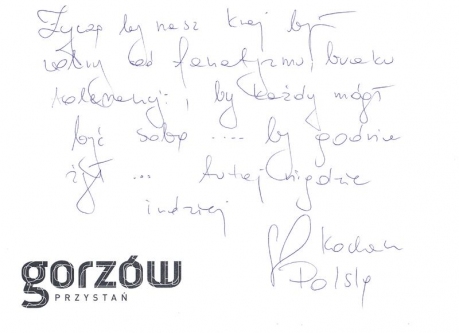 Życzę by nasz kraj był
wolny od fanatyzmu, braku
tolerancji i by każdy mógł
być sobą .... by godnie
żył ... tutaj nigdzie
indziej
Kocham
Polskę
gorzów
PRZYSTAŃ